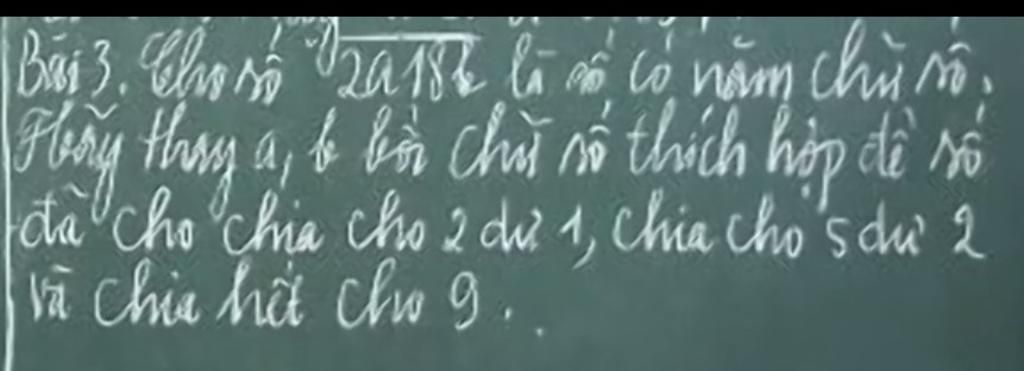 Bài 3. Cho số 2a18b là số có năm chữ số.
Hãy thay a, b bởi chữ số thích hợp để số
đã cho chia cho 2 dư 1, chia cho 5 dư 2
và chia hết cho 9.